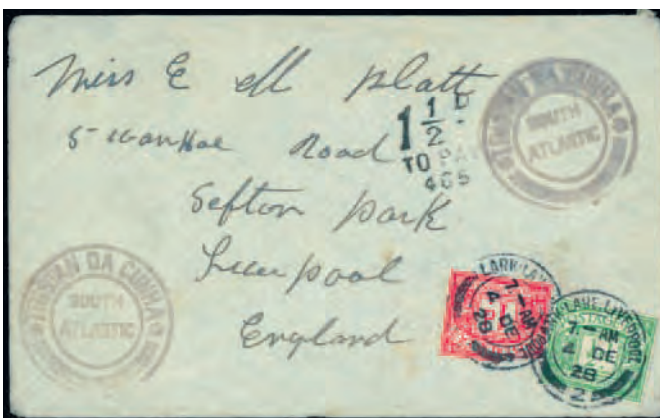 Miss E M Platt
5 Ivanhoe Road
Sefton Park
Liverpool
England
1 1/2 D
TO PAY
485
TRISTAN DA CUNHA
SOUTH
ATLANTIC
TRISTAN DA CUNHA
SOUTH
ATLANTIC
LARK LANE
7-AM
4 DE
28
LARK LANE LIVERPOOL
7-AM
4 DE
28
2